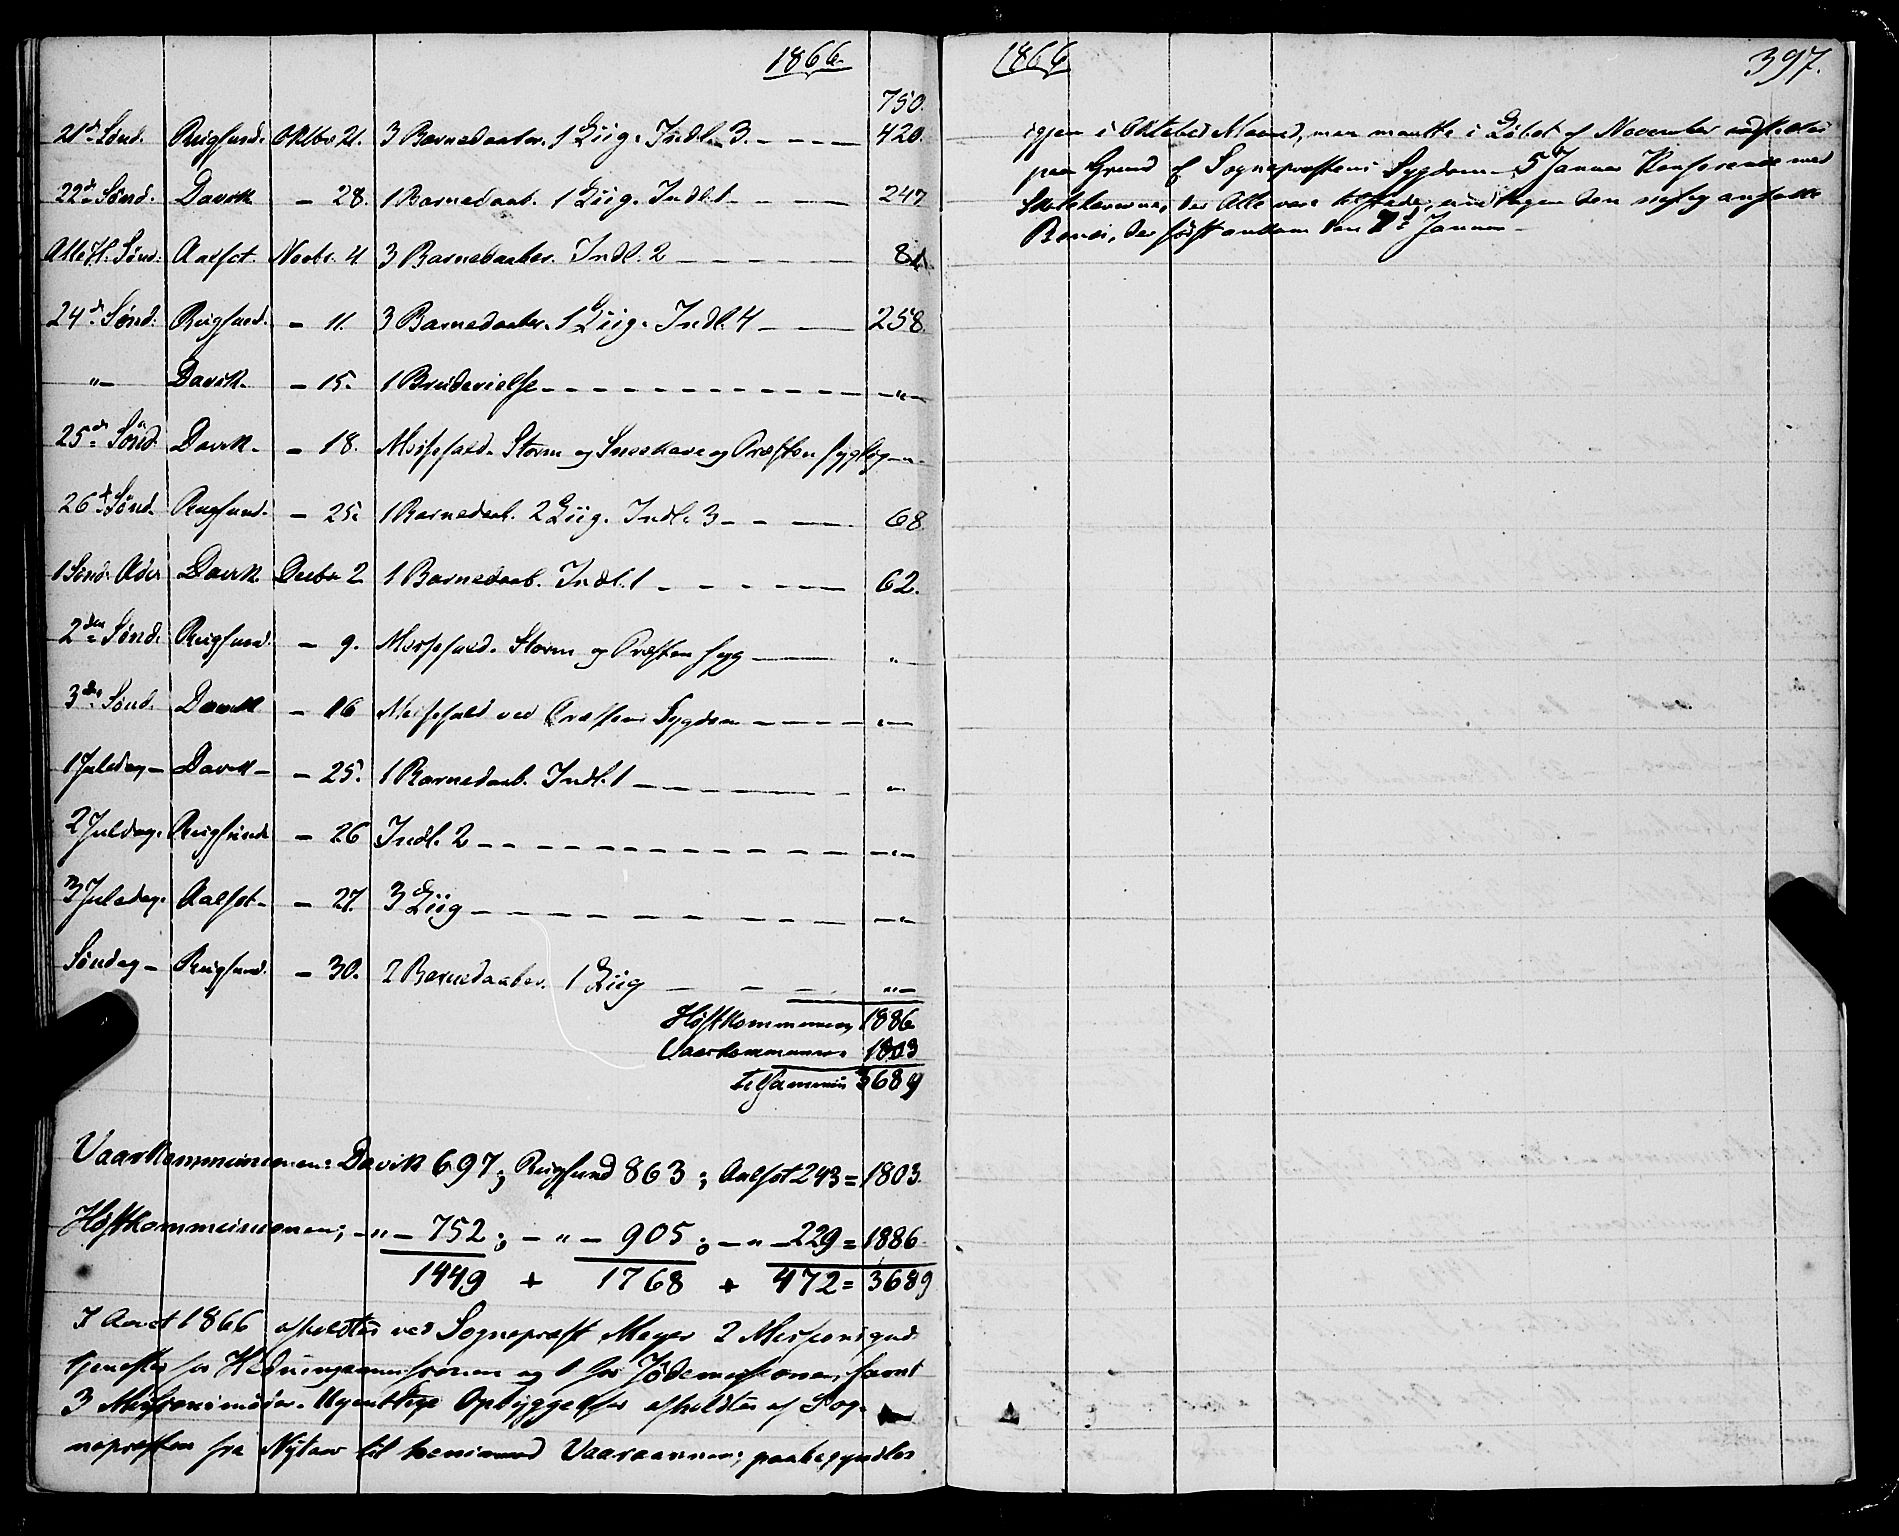 1866.
750.
21de Sønd. Rugsund. Oktbr 21. 3 Barnedaaber. 1 Liig. Indl. 3. 420.
22de Sønd. Davik - 28. 1 Barnedaab. 1 Liig. Indl. 1 247
Alle H. Sønd. Aalfot. Novbr. 4. 3 Barnedaaber. Indl. 2 81
24de Sønd. Rugsund. - 11. 3 Barnedaaber. 1 Liig. Indl. 4 258.
"- Davik. - 15. 1 Brudevielse - "-
25de Sønd. Davik. - 18. Messefald. Storm og Sneskave og Præsten syg -"-
26de Sønd. Rugsund. - 25. 1 Barnedaab. 2 Liig. Indl. 3 68.
1 Sønd. Adv. Davik Decbr 2 1 Barnedaab. Indl. 1 62.
2den Sønd. Rugsund. - 9. Messefald. Storm og Præsten syg "
3die Sønd. Davik - 16 Messefald ved Præstens Sygdom "-
1 Juledag - Davik - - 25. 1 Barnedaab. Indl. 1 "
2 Juldag. Rugsund - 26 Indl. 2 -"-
3 Juledag. Aalfot - - 27. 3 Liig -"-
Søndag - Rugsund. - 30. 2 Barnedaaber. 1 Liig "-
Høstkommunion 1886
Vaarkommunion. 1803
Tilsammen 3689
Vaarkommunionen: Davik 697; Rugsund 863; Aalfot 243 = 1803.
Høstkommunionen; -"- 752; -"- 905; -"- 229 = 1886.
1449 + 1768 + 472 = 3689
I Aaret 1866 afholdtes ved Sognepræst Meyer 2 Missionsgud-
tjenester for Hedningemissionen og 1 for Jødemissionen, samt
3 Missionsmøder. Ugentlige Opbyggelser afholdtes af Sog-
nepræsten fra Nytaar til henimod Vaaraannen; paabegyndtes
1866
397.
igjen i Oktober Maaned, men maatte i Løbet af November
paa Grund af Sognepræstens Sygdom. 5 Januar Konference med
Skolelærerne, der Alle vare tilstede, undtagen den nylig ansatte
der først ankom den 7de Januar -